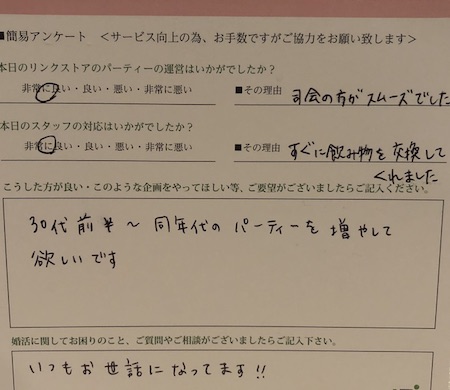 ■簡易アンケート ＜サービス向上の為、お手数ですがご協力をお願い致します＞
本日のリンクストアのパーティーの運営はいかがでしたか？
非常に良い・良い・悪い・非常に悪い ■その理由 司会の方がスムーズでした
本日のスタッフの対応はいかがでしたか？
非常に良い・良い・悪い・非常に悪い ■その理由 すぐに飲み物を交換して
くれました
こうした方が良い・このような企画をやってほしい等、ご要望がございましたらご記入ください。
30代前半～同年代のパーティーを増やして
欲しいです
婚活に関してお困りのこと、ご質問やご相談がございましたらご記入下さい。
いつもお世話になってます!!